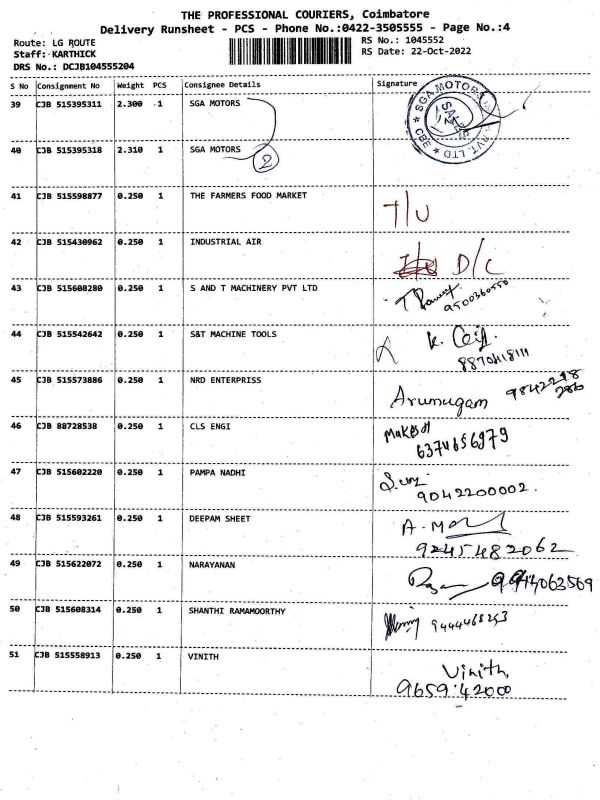 THE PROFESSIONAL COURIERS, Coimbatore
Delivery Runsheet - PCS - Phone No.:0422-3505555 - Page No.:4
Route: LG ROUTE
RS No.: 1045552
Staff: KARTHICK
RS Date: 22-Oct-2022
DRS No.: DCJB104555204
S No Consignment No Weight PCS Consignee Details Signature
39 CJB 515395311 2.300 1 SGA MOTORS
SGA MOTORS PVT. LTD CBE
40 CJB 515395318 2.310 1 SGA MOTORS
2
41 CJB 515598877 0.250 1 THE FARMERS FOOD MARKET T/U
42 CJB 515430962 0.250 1 INDUSTRIAL AIR D/C
43 CJB 515608280 0.250 1 S AND T MACHINERY PVT LTD
9500360550
44 CJB 515542642 0.250 1 S&T MACHINE TOOLS K.
45 CJB 515573886 0.250 1 NRD ENTERPRISS Arumugam 9842298
286
46 CJB 88728538 0.250 1 CLS ENGI Mukesh
6374656979
47 CJB 515602220 0.250 1 PAMPA NADHI
9042200002.
48 CJB 515593261 0.250 1 DEEPAM SHEET
9245482062
49 CJB 515622072 0.250 1 NARAYANAN
50 CJB 515608314 0.250 1 SHANTHI RAMAMOORTHY
51 CJB 515558913 0.250 1 VINITH Vinith,
9659.42000